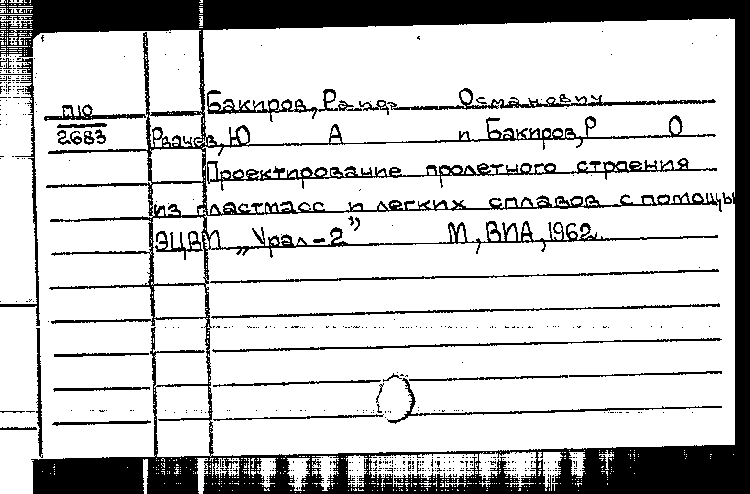 Бакиров, Раиф Османович
П10
2683
Рвачев, Ю А и Бакиров, Р О
Проектирование пролетного строения
из пластмасс и легких сплавов с помощью
ЭЦВМ „Урал-2” М, ВИА, 1962